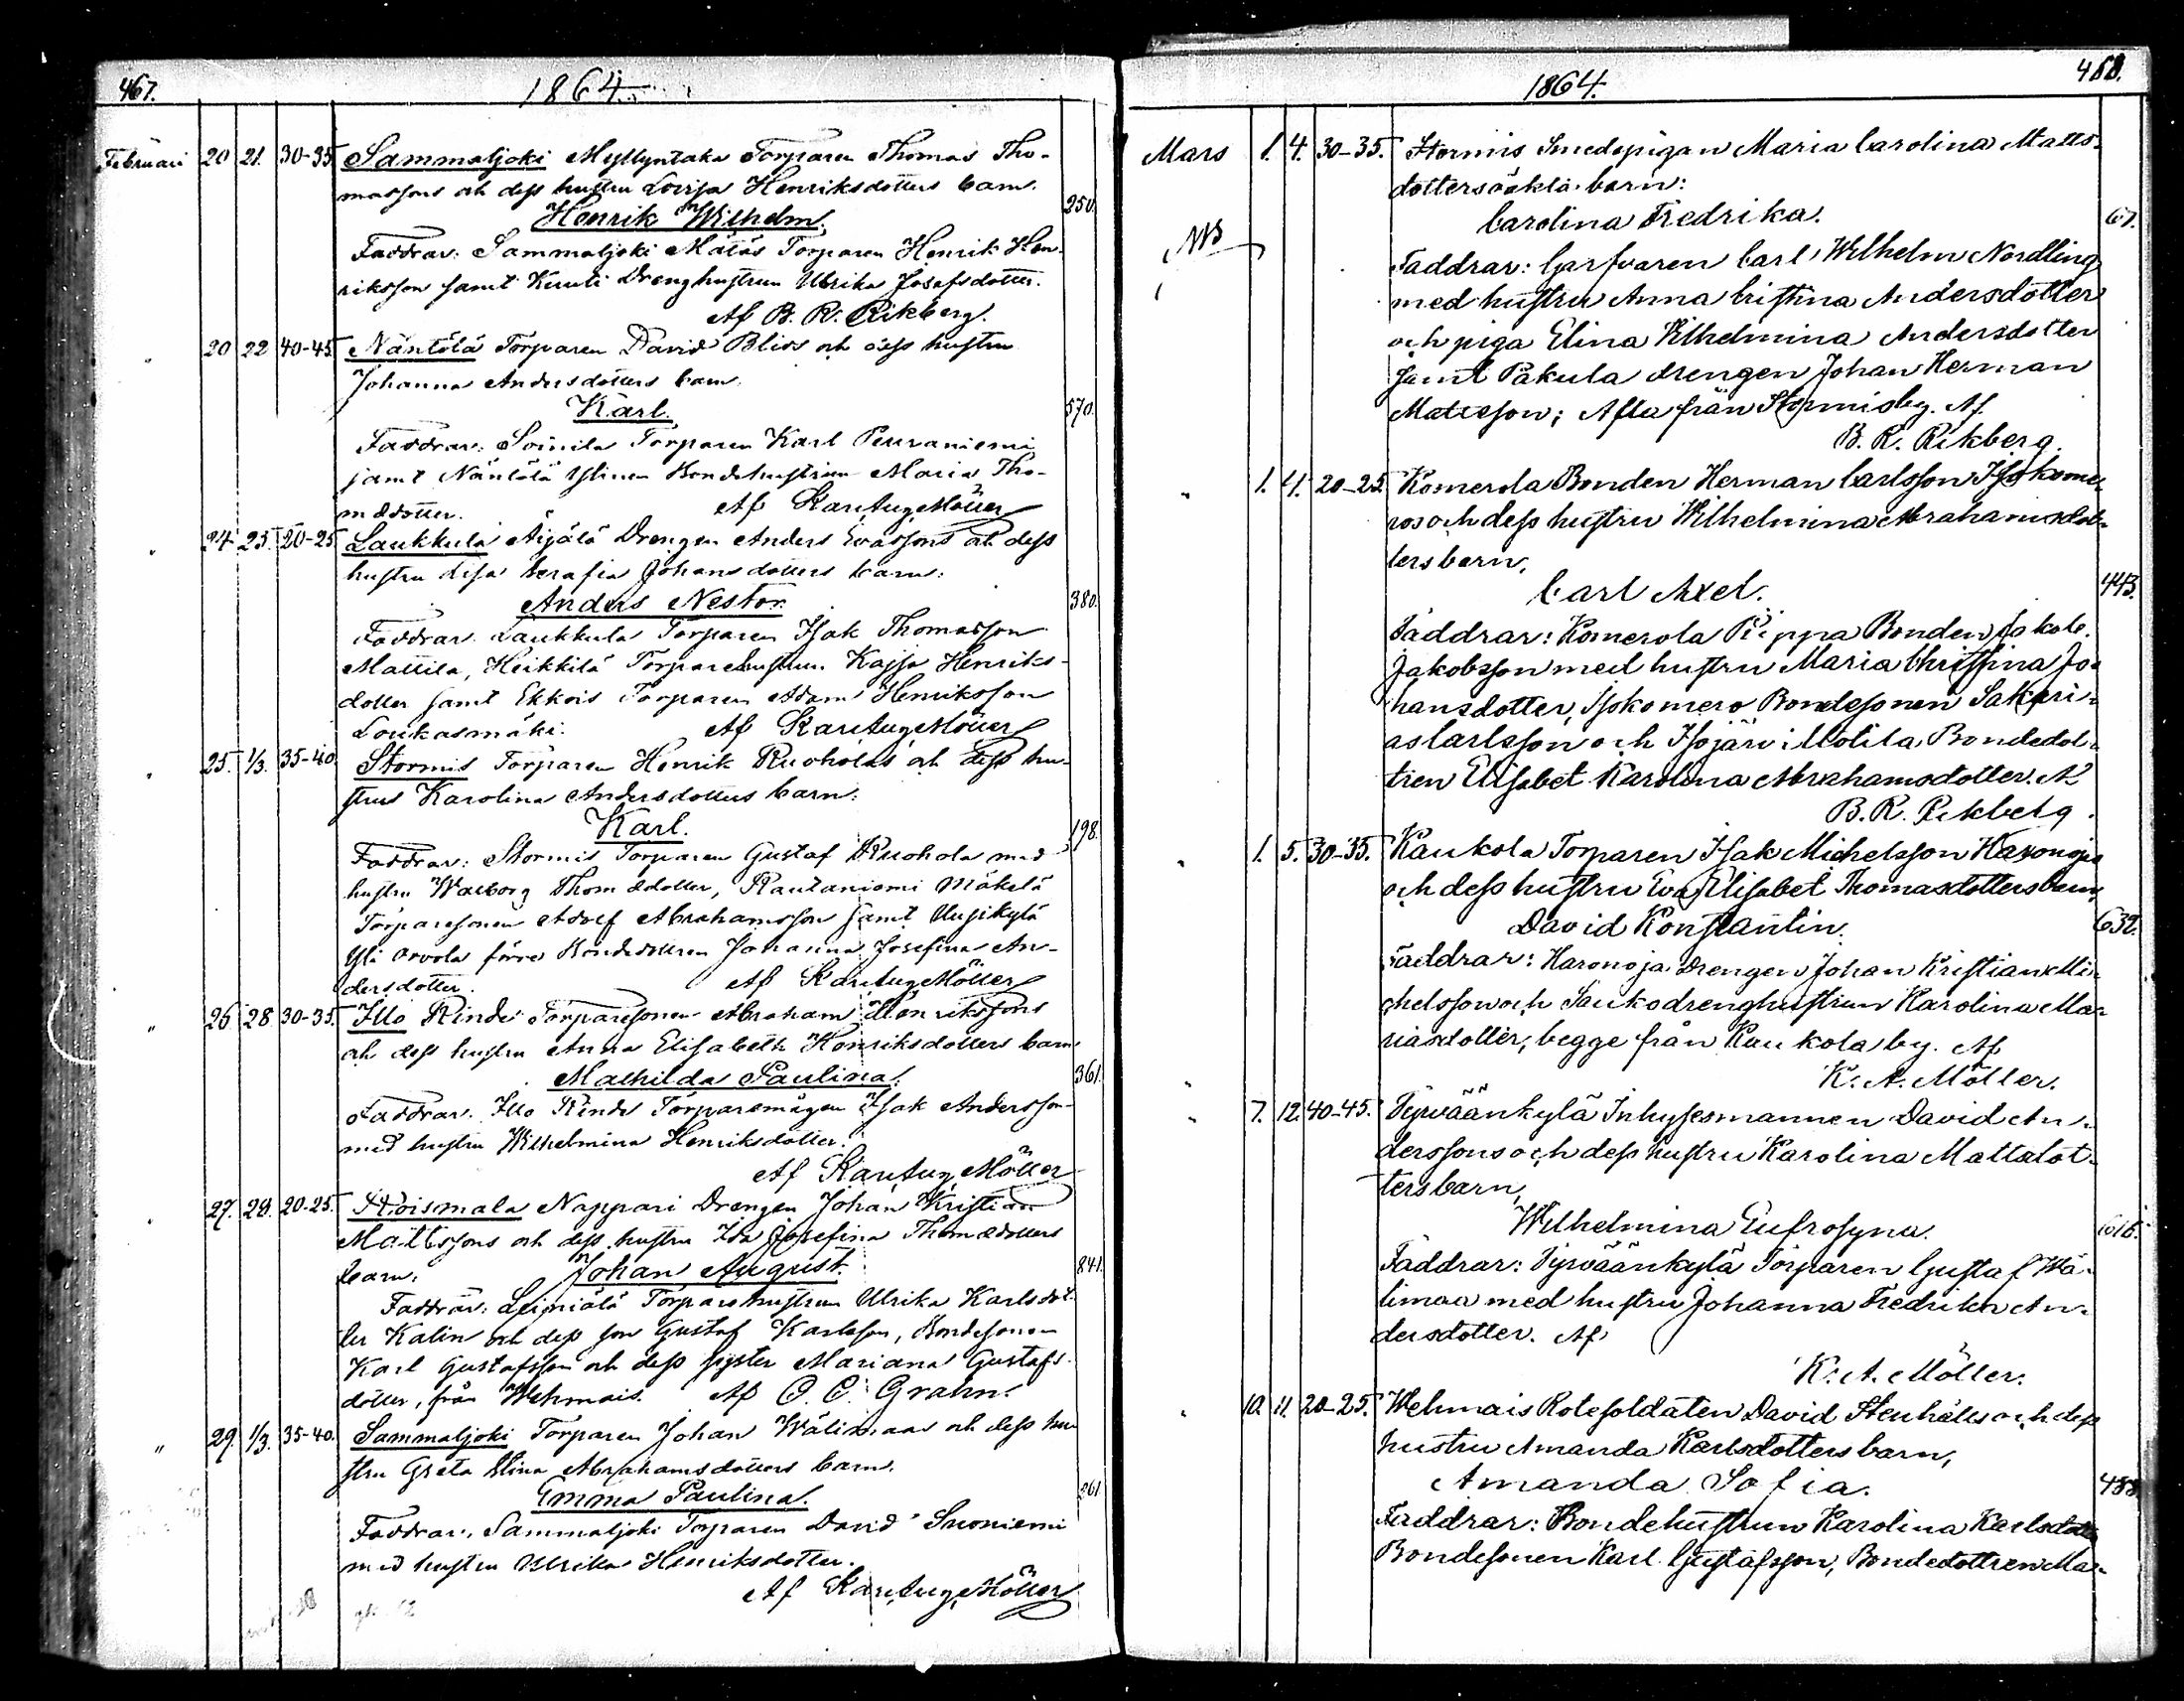 467.
1864.
Februari 20 21. 30-35. Sammaljoki Myllyntaka Torparen Thomas Tho-
massons och dess hustru Lovisa Henriksdotters barn.
Henrik Wilhelm. 250.
Faddrar: Sammaljoki Mätäs Torparen Henrik Hen-
riksson samt Kuuti Drenghustrun Ulrika Josefsdotter.
Af B. R. Rikberg.
" 20 22 40-45 Näntölä Torparen David Bliss och dess hustru
Johanna Andersdotters barn.
Karl. 570.
Faddrar: Soinila Torparen Karl Peuraniemi
samt Näntölä Ylinen Bondehustrun Maria Tho-
mædotter. Af Karl Aug. Möller
" 24 25. 20-25 Laukkula Äijälä Drengen Anders Evassons och dess
hustru Lisa Serafia Johansdotters barn:
Anders Nestor. 380.
Faddrar: Laukkula Torparen Isak Thomasson
Mattila, Heikkilä Torparehustrun Kajsa Henriks-
dotter samt Ekkois Torparen Adam Henriksson
Loukasmäki. Af Karl Aug. Möller
" 25. 1/3. 35-40. Stormis Torparen Henrik Ruoholas och dess hu-
strus Karolina Andersdotters barn:
Karl. 198.
Faddrar: Stormis Torparen Gustaf Ruohola med
hustru Walborg Thomædotter, Rautaniemi Mäkelä
Torparesonen Adolf Abrahamsson samt Uusikylä
Yli Orvola förre Bondedottren Johanna Josefina An-
dersdotter. Af Karl Aug. Möller
" 26 28 30-35. Illo Rinde Torparesonen Abraham Henrikssons
och dess hustru Anna Elisabeth Henriksdotters barn
Mathilda Paulina. 361.
Faddrar: Illo Rinde Torparemågen Isak Andersson
med hustru Wilhelmina Henriksdotter.
Af Karl Aug. Möller
" 27. 28. 20-25. Roismala Nappari Drengen Johan Kristian
Mattssons och dess hustru Ida Josefina Thomædotters
barn: Johan August. 841.
Faddrar: Leiniälä Torparehustrun Ulrika Karlsdot-
ter Kalin och dess son Gustaf Karlsson, Bondesonen
Karl Gustafsson och dess syster Mariana Gustafs-
dotter, från Wehmais. Af O. E. Grahn.
" 29. 1/3. 35-40. Sammaljoki Torparen Johan Wälimaas och dess hu-
stru Greta Stina Abrahamsdotters barn.
Emma Paulina. 261
Faddrar: Sammaljoki Torparen David Suoniemi
med hustru Ulrika Henriksdotter.
Af Karl Aug. Möller
468.
1864.
Mars 1. 4. 30-35. Stormis Smedspigan Maria Carolina Matts-
dotters oäkta barn:
Carolina Fredrika. 67.
NB
Faddrar: Garfvaren Carl Wilhelm Nordling
med hustru Anna Cristina Andersdotter
och piga Elina Wilhelmina Andersdotter
samt Pakula drengen Johan Herman
Mattsson; Alla från Stormisby. Af
B. R. Rikberg.
" 1. 4. 20-25. Komerola Bonden Herman Carlsson Isokome-
ros och dess hustru Wilhelmina Abrahamsdot-
ters barn,
Carl Axel. 443.
Faddrar: Komerola Pippa Bonden Jakob
Jakobsson med hustru Maria Christina Jo-
hansdotter, Isokomero Bondesonen Sakari-
as Carlsson och Isojärvi Motila Bondedot-
tren Elisabet Karolina Abrahamsdotter. Af
B. R. Rikberg.
" 1. 5. 30-35. Kaukola Torparen Isak Michelsson Haronoja
och dess hustru Eva Elisabet Thomasdotters barn,
David Konstantin. 632.
Faddrar: Haronoja Drengen Johan Kristian Mi-
chelsson och Sauko drenghustrun Karolina Ma-
riasdotter, begge från Kaukola by. Af
K. A. Möller.
" 7. 12. 40-45. Tyrväänkylä Inhysesmannen David An-
derssons och dess hustru Karolina Mattsdot-
ters barn,
Wilhelmina Eufrosyna.
Faddrar: Tyrväänkylä Torparen Gustaf Wä-
limaa med hustru Johanna Fredrika An-
dersdotter. Af
K. A. Möller.
" 10. 11. 20-25. Wehmais Rotesoldaten David Stenhälls och dess
hustru Amanda Karlsdotters barn,
Amanda Sofia. 488
Faddrar: Bondehustrun Karolina Karlsdotter
Bondesonen Karl Gustafsson, Bondedottren Ma-